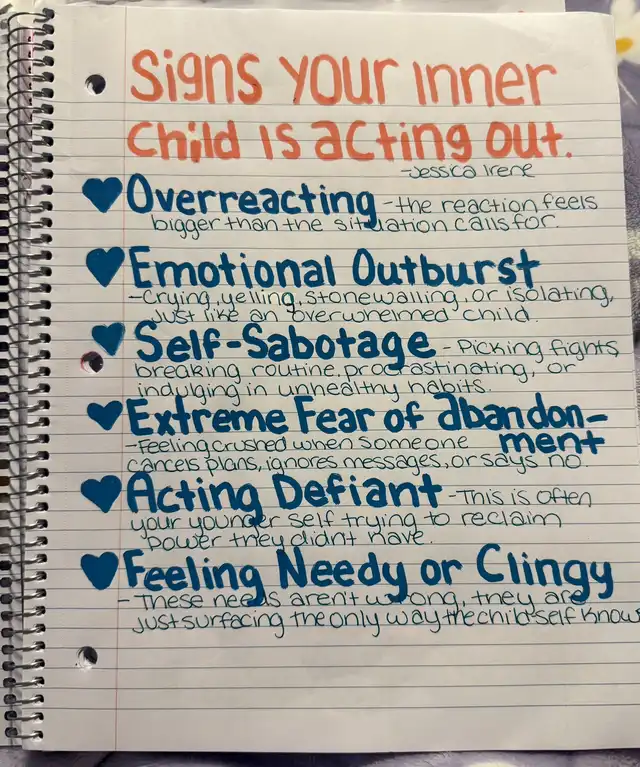 Signs your inner
child is acting out.
-Jessica Irene
Overreacting - the reaction feels
bigger than the situation calls for.
Emotional Outburst
-Crying, yelling, stonewalling, or isolating,
just like an overwhelmed child.
Self-Sabotage - Picking fights,
breaking routine, procrastinating, or
indulging in unhealthy habits.
Extreme Fear of abandon-
ment
-Feeling crushed when someone
cancels plans, ignores messages, or says no.
Acting Defiant - This is often
your younger self trying to reclaim
power they didnt have.
Feeling Needy or Clingy
- These needs aren't wrong, they are
just surfacing the only way the child self know